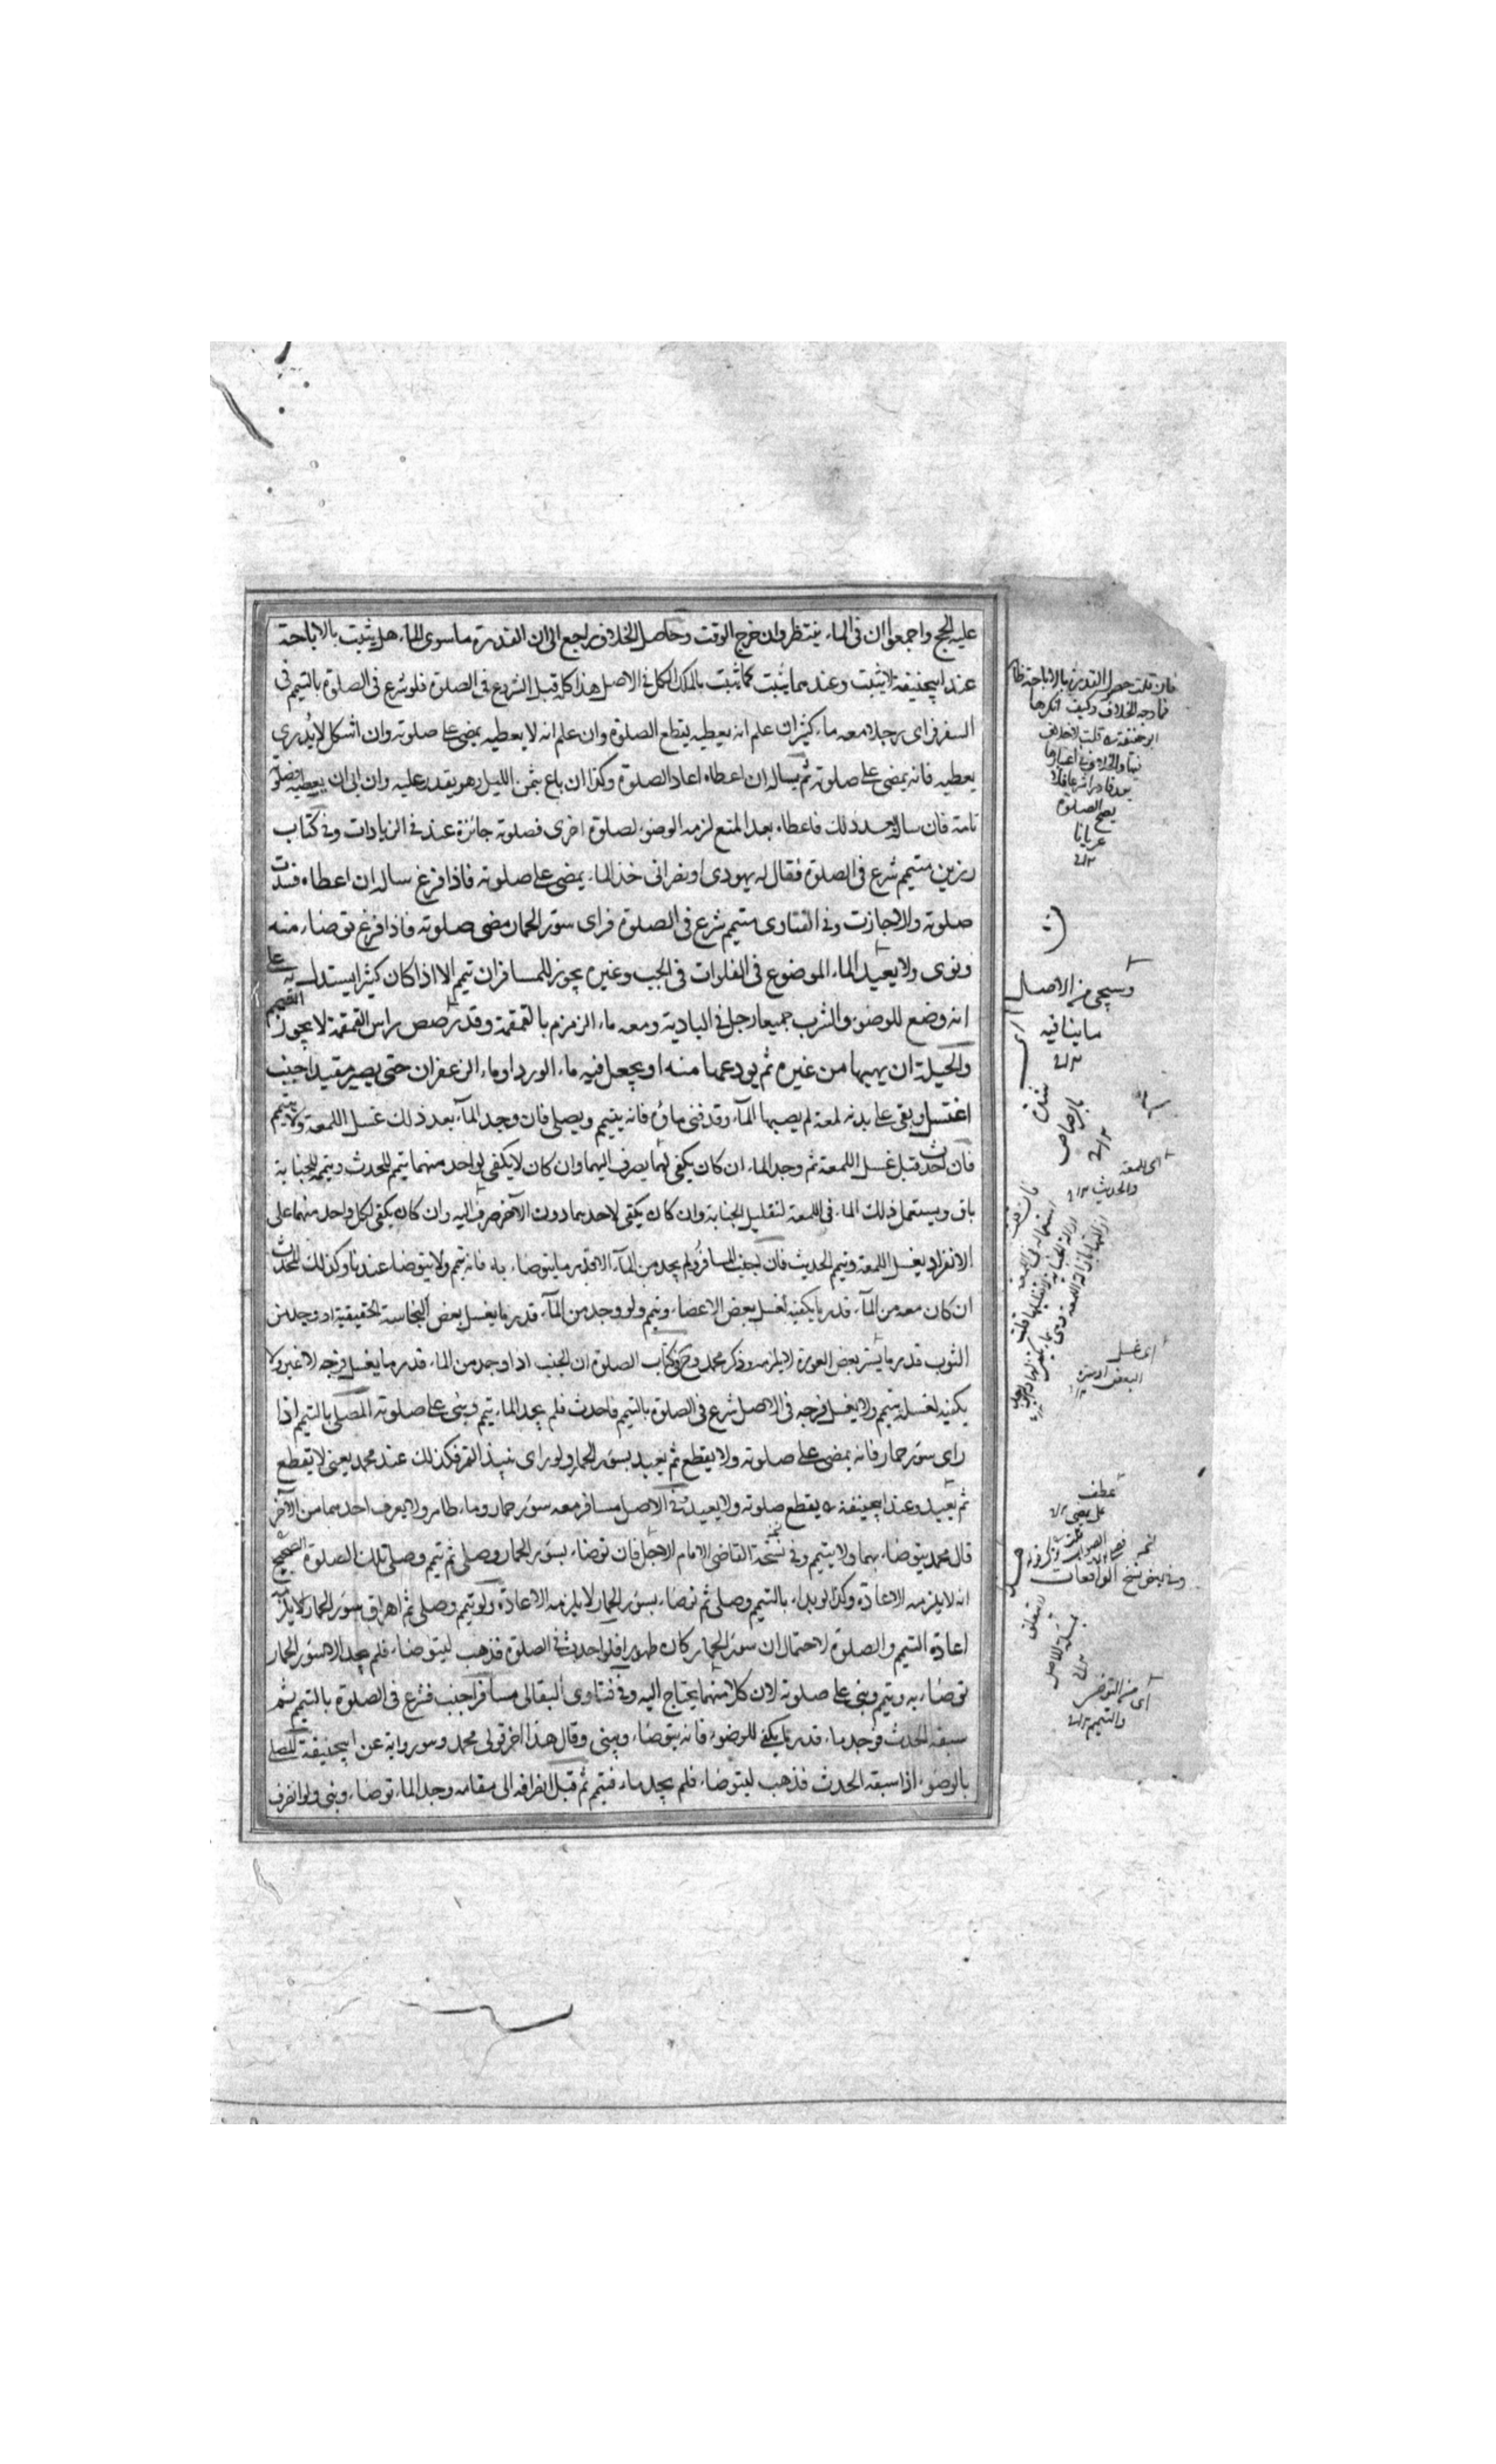 عليه الحج واجمعوا ان فى الماء ينتظر وان خرج الوقت وحاصل الخلاف راجع الى ان القدرة ما سوى الماء هل يثبت بالاباحة
عند ابيحنيفة لا يثبت وعندهما يثبت كما يثبت بالملك الكل فى الاصل هذا كله قبل الشروع فى الصلوة فلو شرع فى الصلوة بالتيمم فى
السفر فراى رجلا معه ماء كثير ان علم انه يعطيه يقطع الصلوة وان علم انه لا يعطيه يمضى على صلوته وان اشكل لا يدرى
يعطيه فانه يمضى على صلوته ثم يساله ان اعطاه اعاد الصلوة وكذا ان باع بثمن المثل وهو يقدر عليه وان ابى ان يعطيه فصلوته
تامة فان سال بعد ذلك فاعطاه بعد المنع لزمه الوضوء لصلوة اخرى فصلوته جائزة عند فى الزيادات وفى كتاب
رزين متيمم شرع فى الصلوة فقال له يهودى او نصرانى خذ الماء يمضى على صلوته فاذا فرغ ساله ان اعطاه فسدت
صلوته والا جازت وفى الفتاوى متيمم شرع فى الصلوة فراى سؤر الحمار مضى صلوته فاذا فرغ توضاء منه
ونوى ولا يعيد الماء الموضوع فى الفلوات فى الجب وغيره يجوز للمسافر ان تيمم الا اذا كان كثيرا يستدل به على
انه وضع للوضوء والشرب جميعا رجل فى البادية ومعه ماء الزمزم بالقمقمة وقد رصص راس القمقمة لا يجوز التيمم
والحيلة ان يهبها من غيره ثم يودعها منه او يجعل فيه ماء الورد او ماء الزعفران حتى يصير مقيدا جنب
اغتسل وبقى على بدنه لمعة لم يصبها الماء وقد فنى ماؤه فانه يتيمم ويصلى فان وجد الماء بعد ذلك غسل اللمعة ولا يتيمم
فان احدث قبل غسل اللمعة ثم وجد الماء ان كان يكفى لهما يصرف اليهما وان كان لا يكفى لواحد منهما يتيمم للحدث وتيممه للجنابة
باق ويستعمل ذلك الماء فى اللمعة لتقليل الجنابة وان كان يكفى لاحدهما دون الآخر صرف اليه وان كان يكفى لكل واحد منهما على
الانفراد يغسل اللمعة وتيمم للحدث فان اجنب المسافر ولم يجد من الماء الا قدر ما يتوضاء به فانه يتيمم ولا يتوضا عندنا وكذلك المحدث
ان كان معه من الماء قدر ما يكفيه لغسل بعض الاعضاء ويتيمم ولو وجد من الماء قدر ما يغسل بعض النجاسة الحقيقية او وجد من
الثوب قدر ما يستر بعض العورة لا يلزمه وذكر محمد فى كتاب الصلوة ان الجنب اذا وجد من الماء قدر ما يغسل فرجه لا غير ولا
يكفيه لغسله يتيمم ولا يغسل فرجه فى الاصل شرع فى الصلوة بالتيمم فاحدث فلم يجد الماء يتيمم وبنى على صلوته المصلى بالتيمم اذا
راى سؤر حمار فانه يمضى على صلوته ولا يقطع ثم يعيد بسؤر الحمار ولو راى نبيذ التمر فكذلك عند محمد يعنى لا يقطع
ثم يعيد وعند ابيحنيفة يقطع صلوته ولا يعيد فى الاصل مسافر معه سؤر حمار وماء طاهر ولا يعرف احدهما من الآخر
قال محمد يتوضاء بهما ولا يتيمم وفى نسخة القاضى الامام الاجل فان توضاء بسؤر الحمار وصلى ثم تيمم وصلى تلك الصلوة الصحيح
انه لا يلزمه الاعادة وكذا لو بداء بالتيمم وصلى ثم توضاء بسؤر الحمار لا يلزمه الاعادة ولو تيمم وصلى ثم اهراق سؤر الحمار لا يلزمه
اعادة التيمم والصلوة لاحتمال ان سؤر الحمار كان طهورا فلو احدث فى الصلوة فذهب ليتوضاء فلم يجد الا سؤر الحمار
توضاء به ويتيمم وبنى على صلوته لان كلا منهما يحتاج اليه وفى فتاوى البقالى مسافر اجنب فشرع فى الصلوة بالتيمم ثم
سبقه الحدث فوجد ماء قدر ما يكفى للوضوء فانه يتوضاء ويبنى وقال هذا اخر قولى محمد وهو رواية عن ابيحنيفة المصلى
بالوضوء اذا سبقه الحدث فذهب ليتوضاء فلم يجد ماء فتيمم ثم قبل انصرافه الى مقامه وجد الماء توضاء وبنى ولو انصرف
فان قلت
فما وجه الخلاف وكيف انكرها
يصح الصلوة
عريانا
وسيجئ من الاصل
ما ينافيه
اى اللمعة
والحدث
اى غسل
البعض
عطف
على يمضى
وفى بعض نسخ الواقعات
اى من التوضى
والتيمم